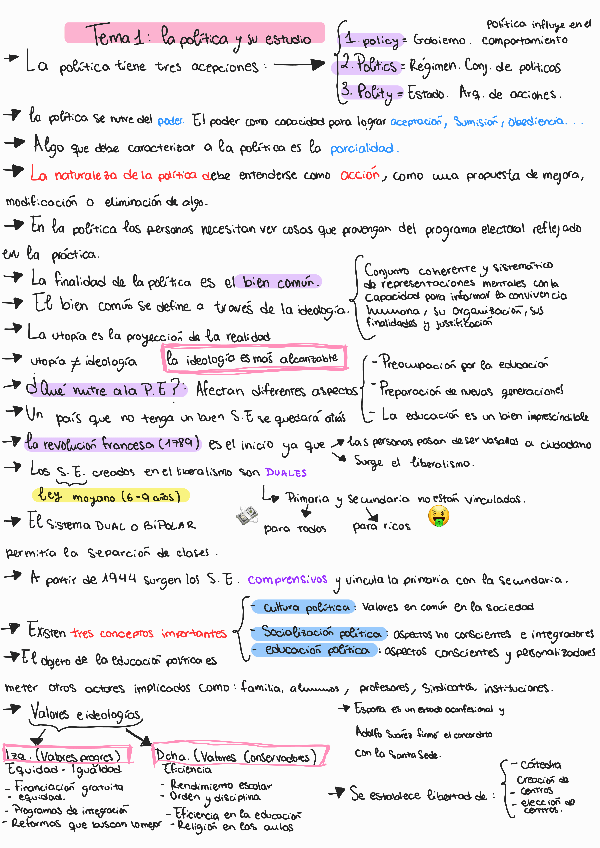 Tema 1: la política y su estudio
política influye en el comportamiento
→ La política tiene tres acepciones: →
1. policy = Gobierno.
2. Politics = Régimen. Conj. de políticos
3. Polity = Estado. Arq. de acciones.
→ la política se nutre del poder. El poder como capacidad para lograr aceptación, sumisión, obediencia...
→ Algo que debe caracterizar a la política es la parcialidad.
→ La naturaleza de la política debe entenderse como acción, como una propuesta de mejora,
modificación o eliminación de algo.
→ En la política las personas necesitan ver cosas que provengan del programa electoral reflejado
en la práctica.
→ La finalidad de la política es el bien común.
→ El bien común se define a través de la ideología.
Conjunto coherente y sistemático
de representaciones mentales con la
capacidad para informar la convivencia
humana, su organización, sus
finalidades y justificación
→ La utopía es la proyección de la realidad
→ utopía ≠ ideología
la ideología es más alcanzable
→ ¿Qué nutre a la P.E?: Afectan diferentes aspectos
- Preocupación por la educación
- Preparación de nuevas generaciones
- La educación es un bien imprescindible
→ Un país que no tenga un buen S.E se quedará atrás
→ la revolución francesa (1789) es el inicio ya que → las personas pasan de ser vasallos a ciudadano
Surge el liberalismo.
→ Los S.E. creados en el liberalismo son DUALES
ley moyano (6-9 años)
Primaria y secundaria no están vinculados.
para todos para ricos
→ El Sistema DUAL o BIPOLAR
permitía la separción de clases.
→ A partir de 1944 surgen los S.E. comprensivos y vincula la primaria con la secundaria.
→ Existen tres conceptos importantes
- cultura política: Valores en común en la sociedad
- Socialización política: aspectos no conscientes e integradores
- educación política: aspectos conscientes y personalizadores
→ El objeto de la educación política es
meter otros actores implicados como: familia, alumnos, profesores, sindicatos, instituciones.
→ Valores e ideologías
Izq. (Valores progres)
Equidad - Igualdad
- Financiación gratuita
- equidad.
- Programas de integración
- Reformas que buscan lo mejor
Dcha. (Valores Conservadores)
Eficiencia
- Rendimiento escolar
- Orden y disciplina
- Eficiencia en la educación
- Religión en las aulas
→ España es un estado aconfesional y
Adolfo Suárez firmó el concordato
con la Santa Sede.
→ Se establece libertad de:
- cátedra
- Creación de
centros
- elección de
centros.